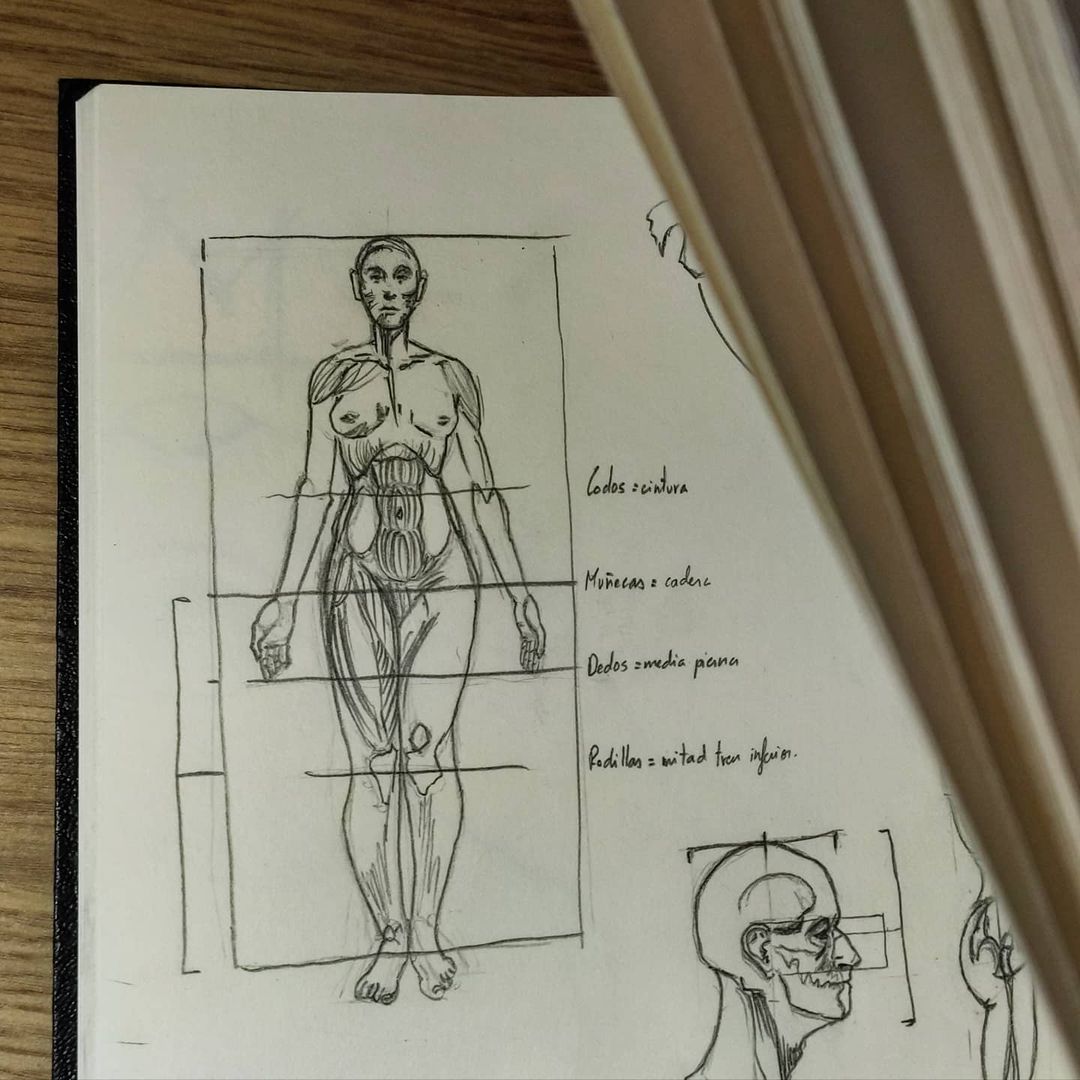 Codos = cintura
Muñecas = cadera
Dedos = media pierna
Rodillas = mitad tren inferior.